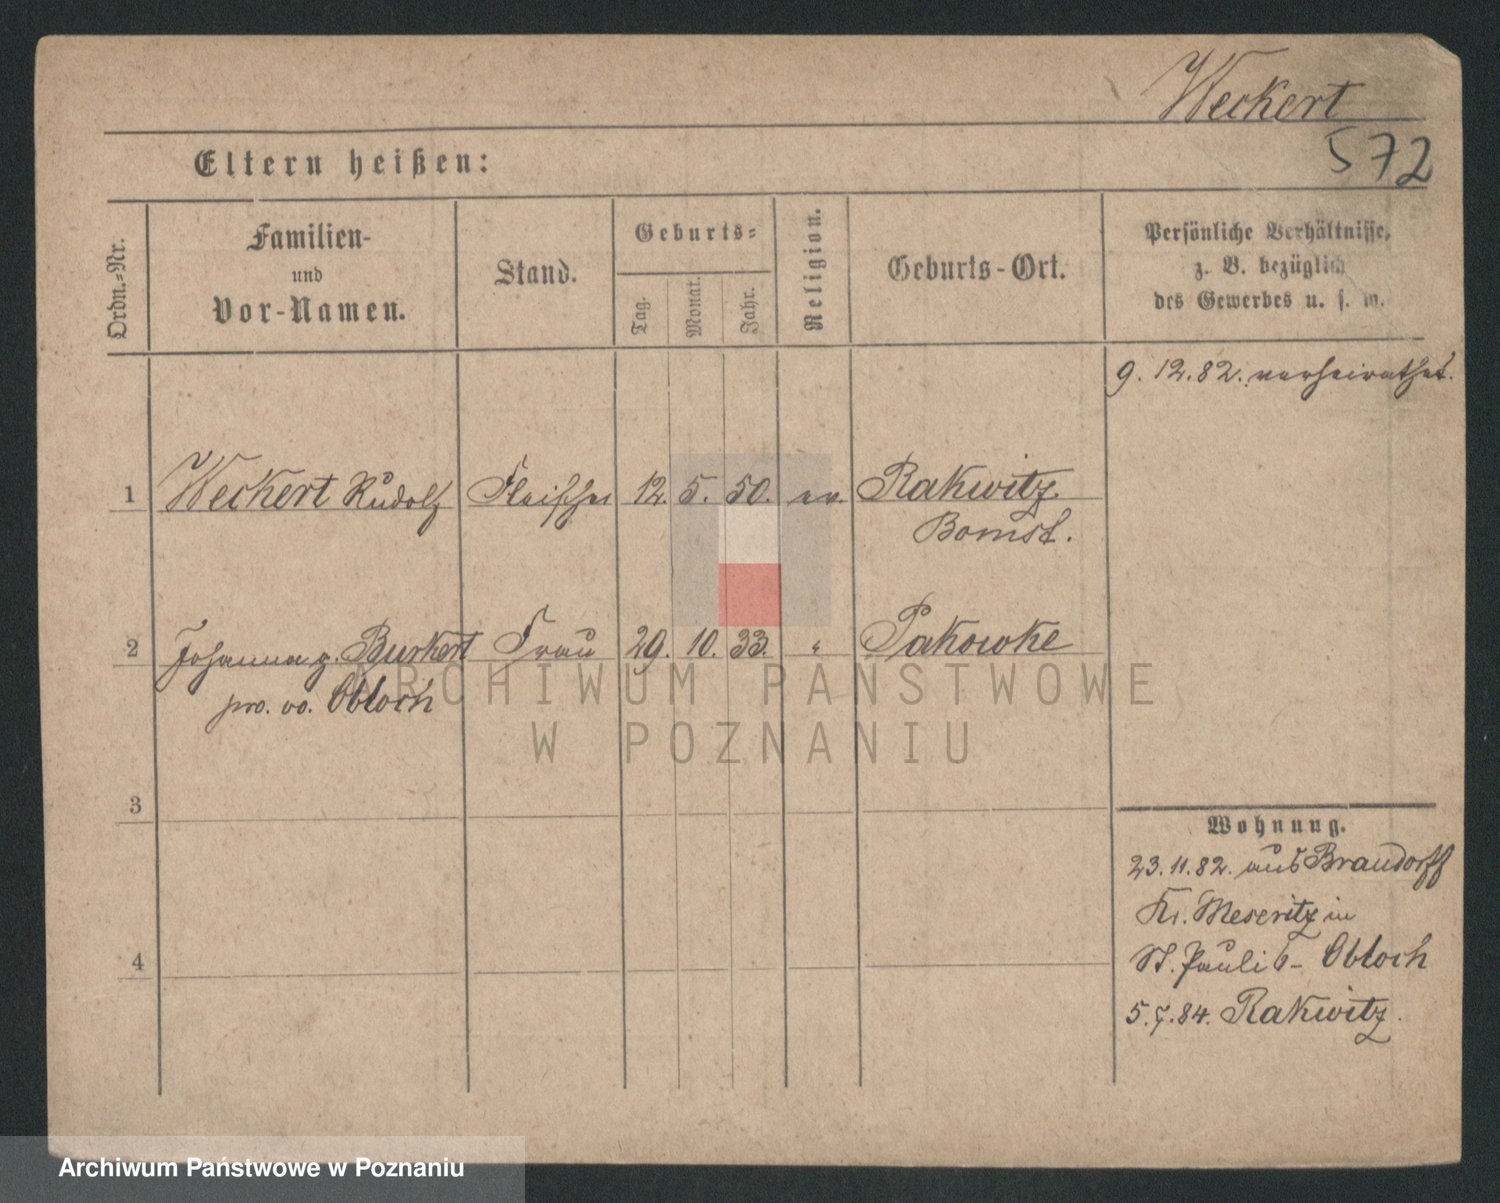 Weckert
572
Eltern heißen:
Ordn.-Nr.
Familien-
und
Vor-Namen.
Stand.
Geburts-
Tag.
Monat.
Jahr.
Religion.
Geburts-Ort.
Persönliche Verhältnisse,
z. B. bezüglich
des Gewerbes u. s. w.
9. 12. 82. verheirathet.
1 Weckert Rudolf Fleischer 12. 5. 50. ev. Rakwitz
Bomst.
2 Johanna g. Burkert Frau 29. 10. 33. " Pakowke
pro. vo. Obloch
ARCHIWUM PAŃSTWOWE
W POZNANIU
3
4
Wohnung.
23. 11. 82. aus Braudorff
Kr. Meseritz in
St. Pauli 6- Obloch
5. 7. 84. Rakwitz.
Archiwum Państwowe w Poznaniu